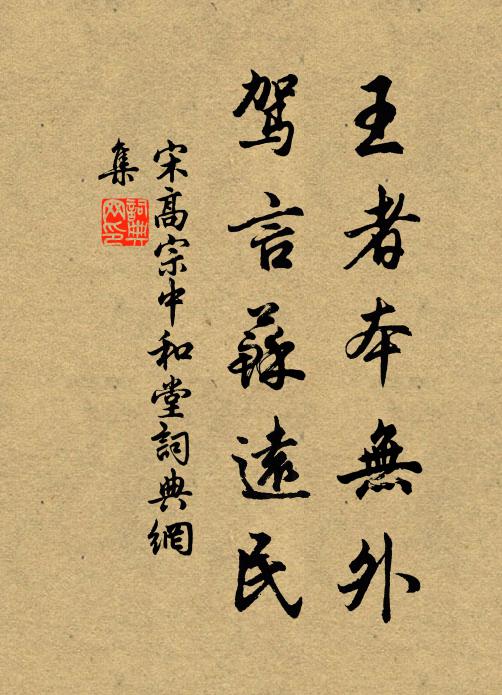 王者本無外
駕言蘇遠民
宋高宗中和堂詞典網
集
詞典網印